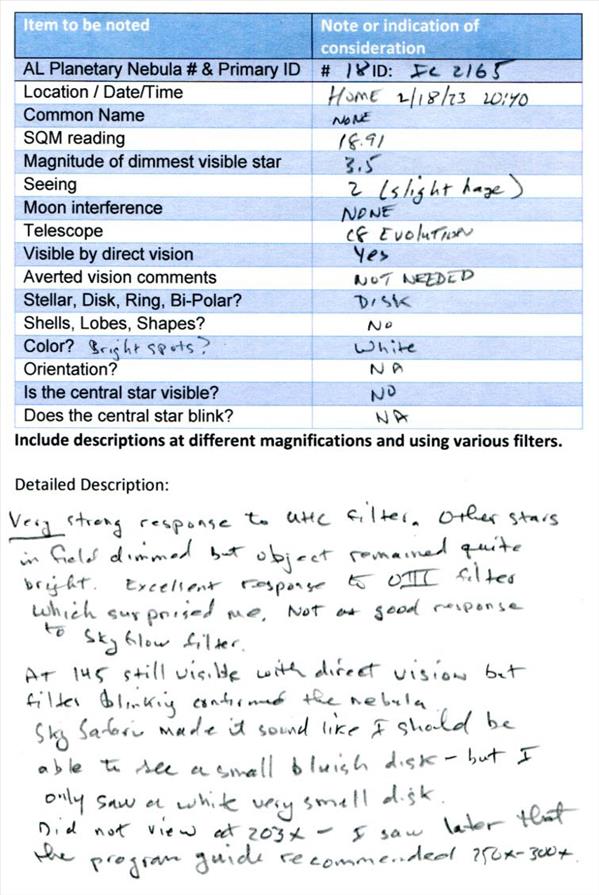 Item to be noted Note or indication of consideration
AL Planetary Nebula # & Primary ID # 18 ID: IC 2165
Location / Date/Time HOME 2/18/23 20:40
Common Name NONE
SQM reading 18.91
Magnitude of dimmest visible star 3.5
Seeing 2 (slight haze)
Moon interference NONE
Telescope C8 Evolution
Visible by direct vision Yes
Averted vision comments NOT NEEDED
Stellar, Disk, Ring, Bi-Polar? DISK
Shells, Lobes, Shapes? NO
Color? Bright spots? White
Orientation? NA
Is the central star visible? NO
Does the central star blink? NA
Include descriptions at different magnifications and using various filters.
Detailed Description:
Very strong response to UHC filter. Other stars
in field dimmed but object remained quite
bright. Excellent response to OIII filter
which surprised me. Not as good response
to Sky Glow filter.
AT 145 still visible with direct vision but
filter blinking confirmed the nebula.
Sky Safari made it sound like I should be
able to see a small bluish disk - but I
only saw a white very small disk.
Did not view at 203x - I saw later that
the program guide recommended 250x-300x.